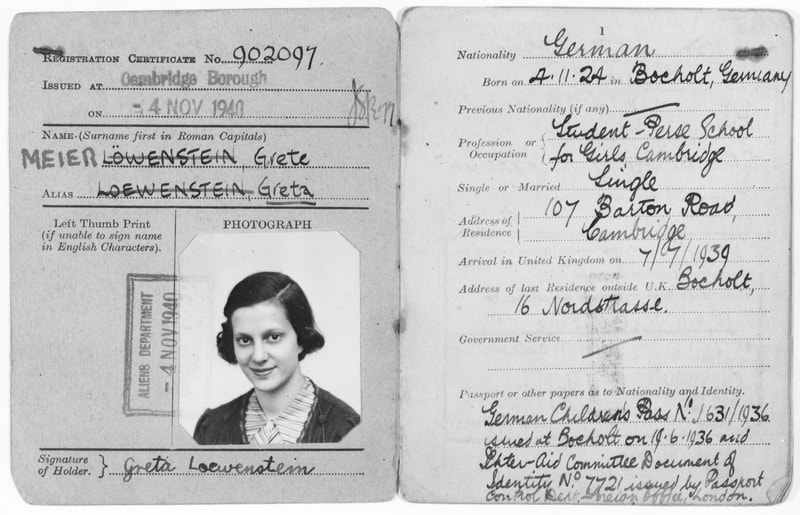 REGISTRATION CERTIFICATE No. 902097.
ISSUED AT Cambridge Borough
ON - 4 NOV 1940
NAME (Surname first in Roman Capitals)
MEIER LÖWENSTEIN, Grete
ALIAS LOEWENSTEIN, Greta
Left Thumb Print
(if unable to sign name
in English Characters).
PHOTOGRAPH
ALIENS DEPARTMENT
- 4 NOV 1940
Signature
of Holder. } Greta Loewenstein
1
Nationality German
Born on 4.11.24 in Bocholt, Germany
Previous Nationality (if any)
Profession or Occupation { Student - Perse School
for Girls, Cambridge
Single or Married Single
Address of Residence { 107 Barton Road,
Cambridge
Arrival in United Kingdom on 7/7/1939
Address of last Residence outside U.K. Bocholt,
16 Nordstrasse.
Government Service
Passport or other papers as to Nationality and Identity.
German Childrens Pass No. 1631/1936
issued at Bocholt on 19.6.1936 and
Inter-Aid Committee Document of
Identity No. 7721 issued by Passport
Control Dept, Foreign Office, London.